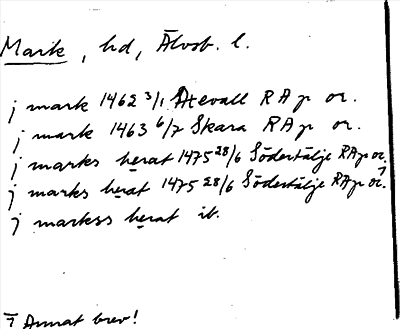 Mark, hd, Älvsb. l.
j mark 1462 3/1 Åtevall RAp or.
j mark 1463 6/7 Skara RAp or.
j marks herat 1475 28/6 Södertälje RAp or.
j marks herat 1475 28/6 Södertälje RAp or. 1
j markss herat ib.
1 Annat brev!